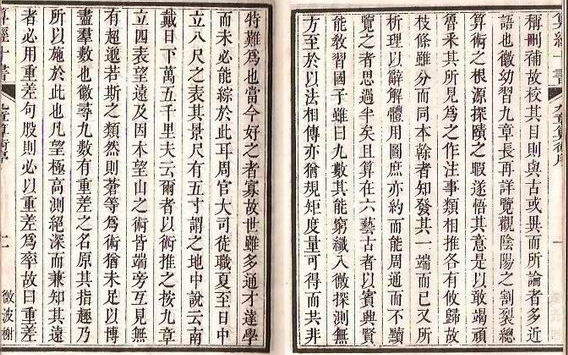 算經十書
九章算術序
稱刪補故校其目則與古或異而所論者多近
語也徽幼習九章長再詳覽觀陰陽之割裂總
算術之根源探賾之暇遂悟其意是以敢竭頑
魯采其所見爲之作注事類相推各有攸歸故
枝條雖分而同本榦者知發其一端而已又所
析理以辭解體用圖庶亦約而能周通而不黷
覽之者思過半矣且算在六藝古者以賓興賢
能教習國子雖曰九數其能窮纖入微探測無
方至於以法相傳亦猶規矩度量可得而共非
特難爲也當今好之者寡故世雖多通才達學
而未必能綜於此耳周官大司徒職夏至日中
立八尺之表其景尺有五寸謂之地中說云南
戴日下萬五千里夫云爾者以術推之按九章
立四表望遠及因木望山之術皆端旁互見無
有超邈若斯之類然則蒼等爲術猶未足以博
盡羣數也徽尋九數有重差之名原其指趣乃
所以施於此也凡望極高測絕深而兼知其遠
者必用重差句股則必以重差爲率故曰重差
算經十書
九章算術序
二
微波榭